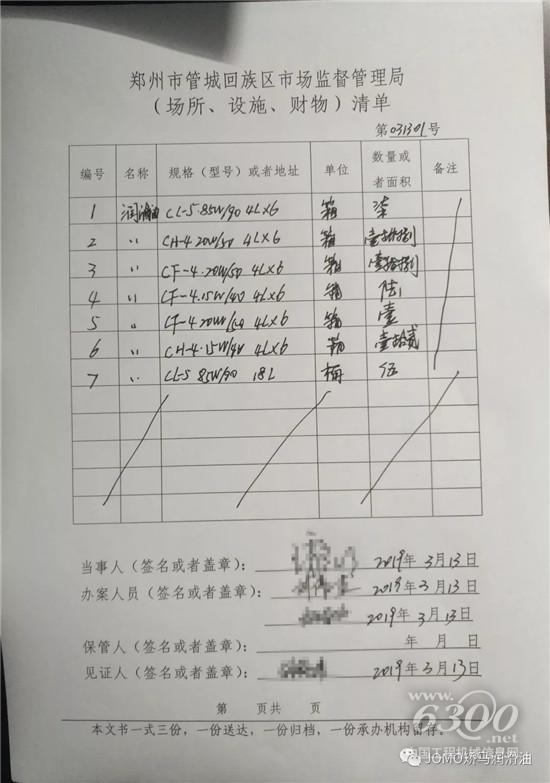 郑州市管城回族区市场监督管理局
（场所、设施、财物）清单
第031301号
编号 名称 规格（型号）或者地址 单位 数量或者面积 备注
1 润滑油 CL-5 85W/90 4L×6 箱 柒
2 〃 CH-4 20W/50 4L×6 箱 壹拾捌
3 〃 CF-4 20W/50 4L×6 箱 壹拾捌
4 〃 CF-4 15W/40 4L×6 箱 陆
5 〃 CF-4 20W/50 4L×6 箱 壹
6 〃 CH-4 15W/40 4L×6 箱 壹拾贰
7 〃 CL-5 85W/90 18L 桶 伍
当事人（签名或者盖章）： 2019年3月13日
办案人员（签名或者盖章）： 2019年3月13日
2019年3月13日
保管人（签名或者盖章）： 年 月 日
见证人（签名或者盖章）： 2019年3月13日
第 页共 页
本文书一式三份，一份送达，一份归档，一份承办机构留存。
www.
6300
.net
中国工程机械信息网
JOMO娇马润滑油